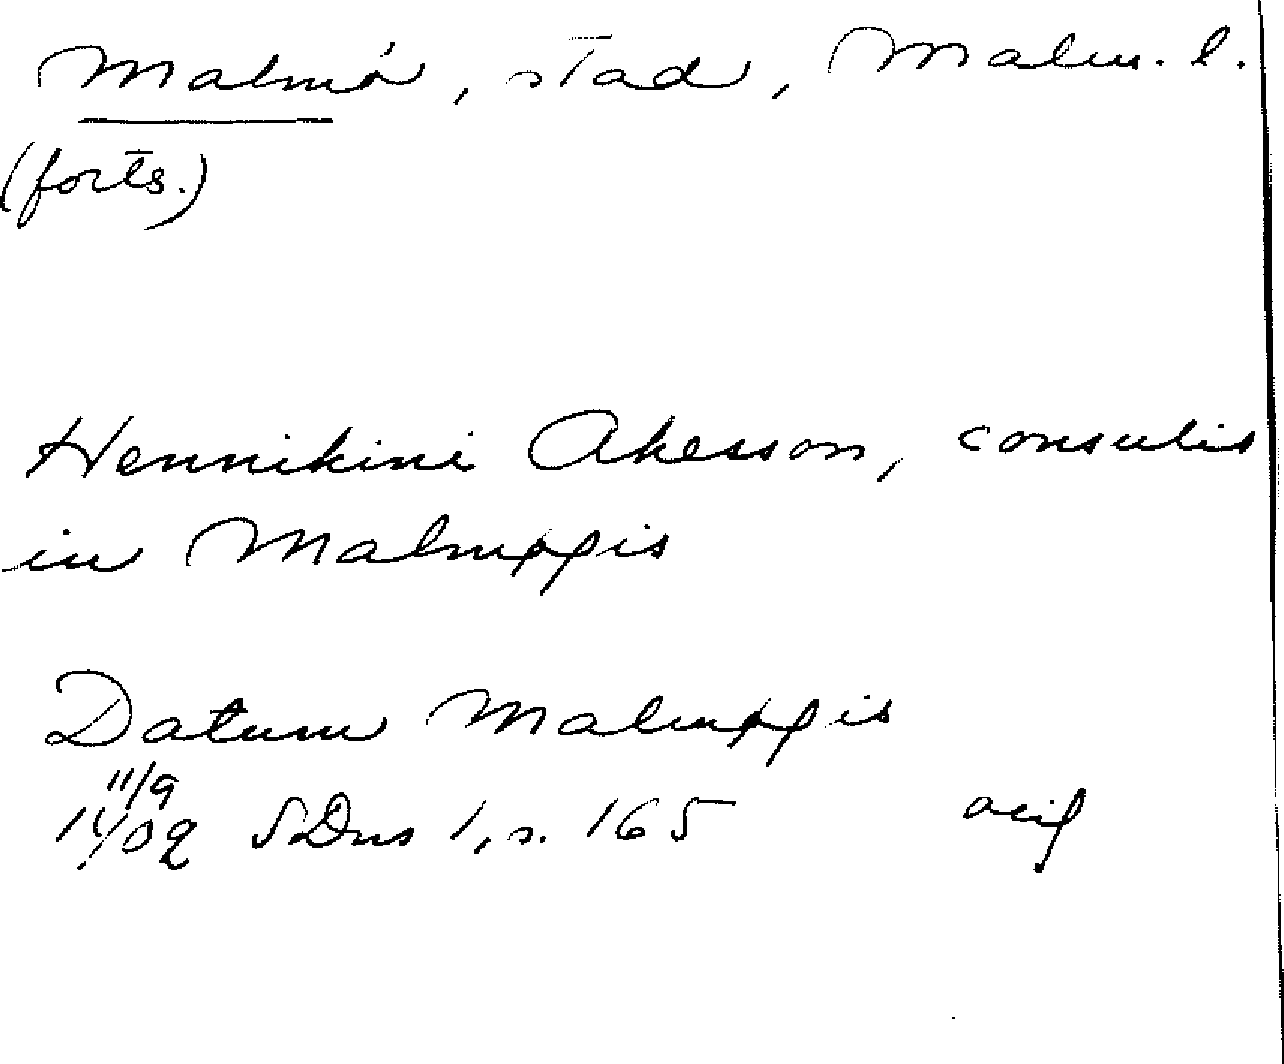 Malmö, stad, Malm. l.
(forts.)
Hennikini Akesson, consulis
in Malmøgis
Datum Malmøgis
11/9
1402 SDns 1, s. 165 avif